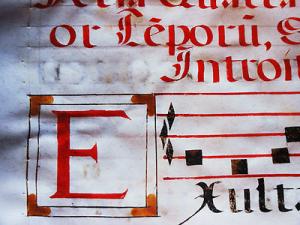 or Lēporū, S
Introit
E
Xult